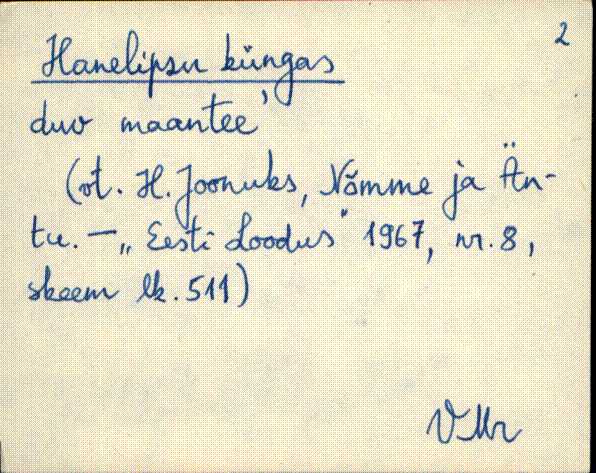 2
Hanelipsu küngas
duv maantee'
(vt. H. Joonuks, Nõmme ja Än-
tu. – „Eesti Loodus" 1967, nr. 8,
skeem lk. 511)
VMr